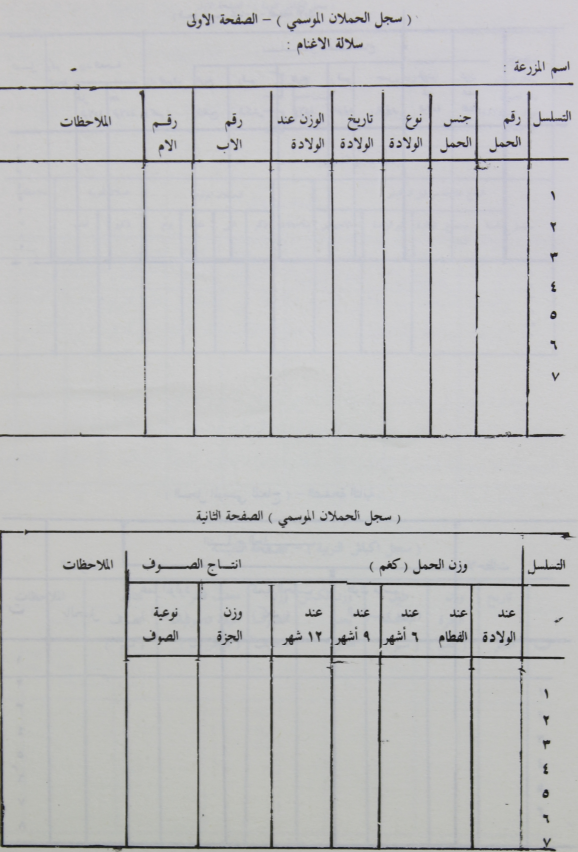 ( سجل الحملان الموسمي ) – الصفحة الاولى
سلالة الاغنام :
اسم المزرعة :
التسلسل رقم الحمل جنس الحمل نوع الولادة تاريخ الولادة الوزن عند الولادة رقم الاب رقـــم الام الملاحظات
١
٢
٣
٤
٥
٦
٧
( سجل الحملان الموسمي ) الصفحة الثانية
التسلسل وزن الحمل ( كغم ) انتــاج الصـــــوف الملاحظات
عند الولادة عند الفطام عند ٦ أشهر عند ٩ أشهر عند ١٢ شهر وزن الجزة نوعية الصوف
١
٢
٣
٤
٥
٦
٧